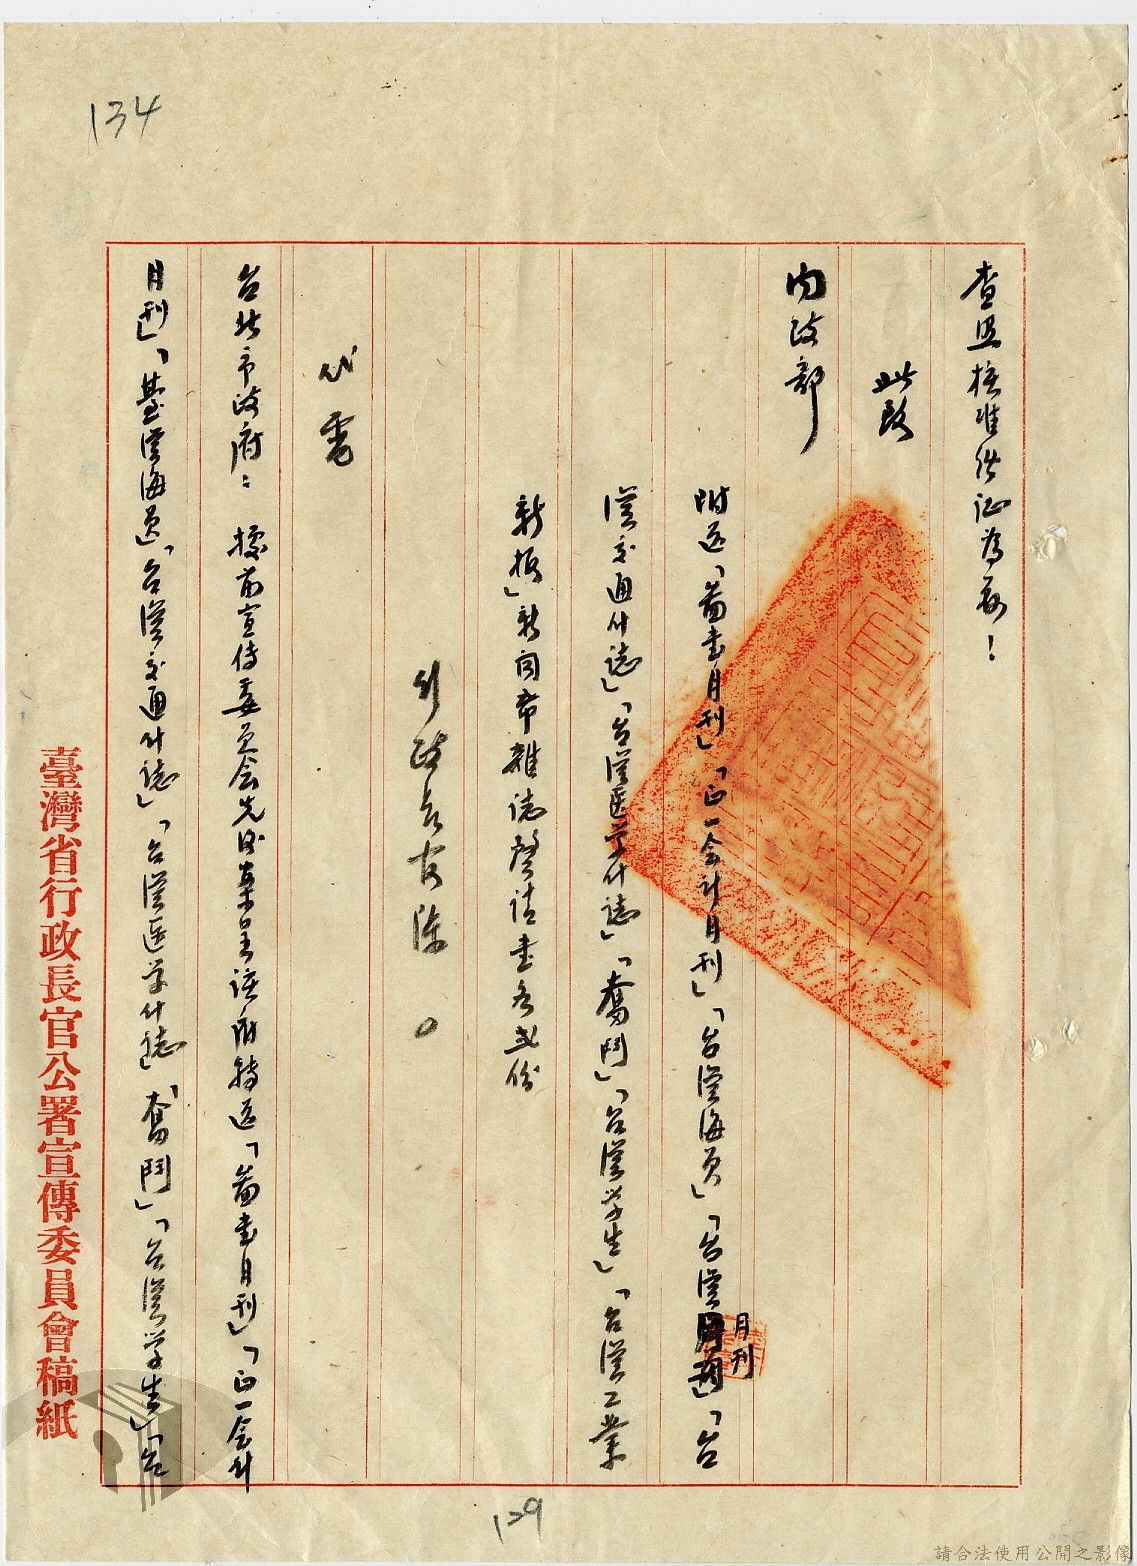 134
查照核准給証為荷！
此致
内政部
附送「圖書月刊」「正一会計月刊」「台湾海員」「台湾月刊」「台
湾交通什誌」「台湾医学什誌」「奮鬥」「台湾学生」「台湾工業
新報」新聞雜誌聲請書各弍份
行政長官陳〇
代電
台北市政府：據前宣傳委員会先後案呈該府轉送「圖書月刊」「正一会計
月刊」「臺湾海員」「台湾交通什誌」「台湾医学什誌」「奮鬥」「台湾学生」「台
臺灣省行政長官公署宣傳委員會稿紙
129
請合法使用公開之影像